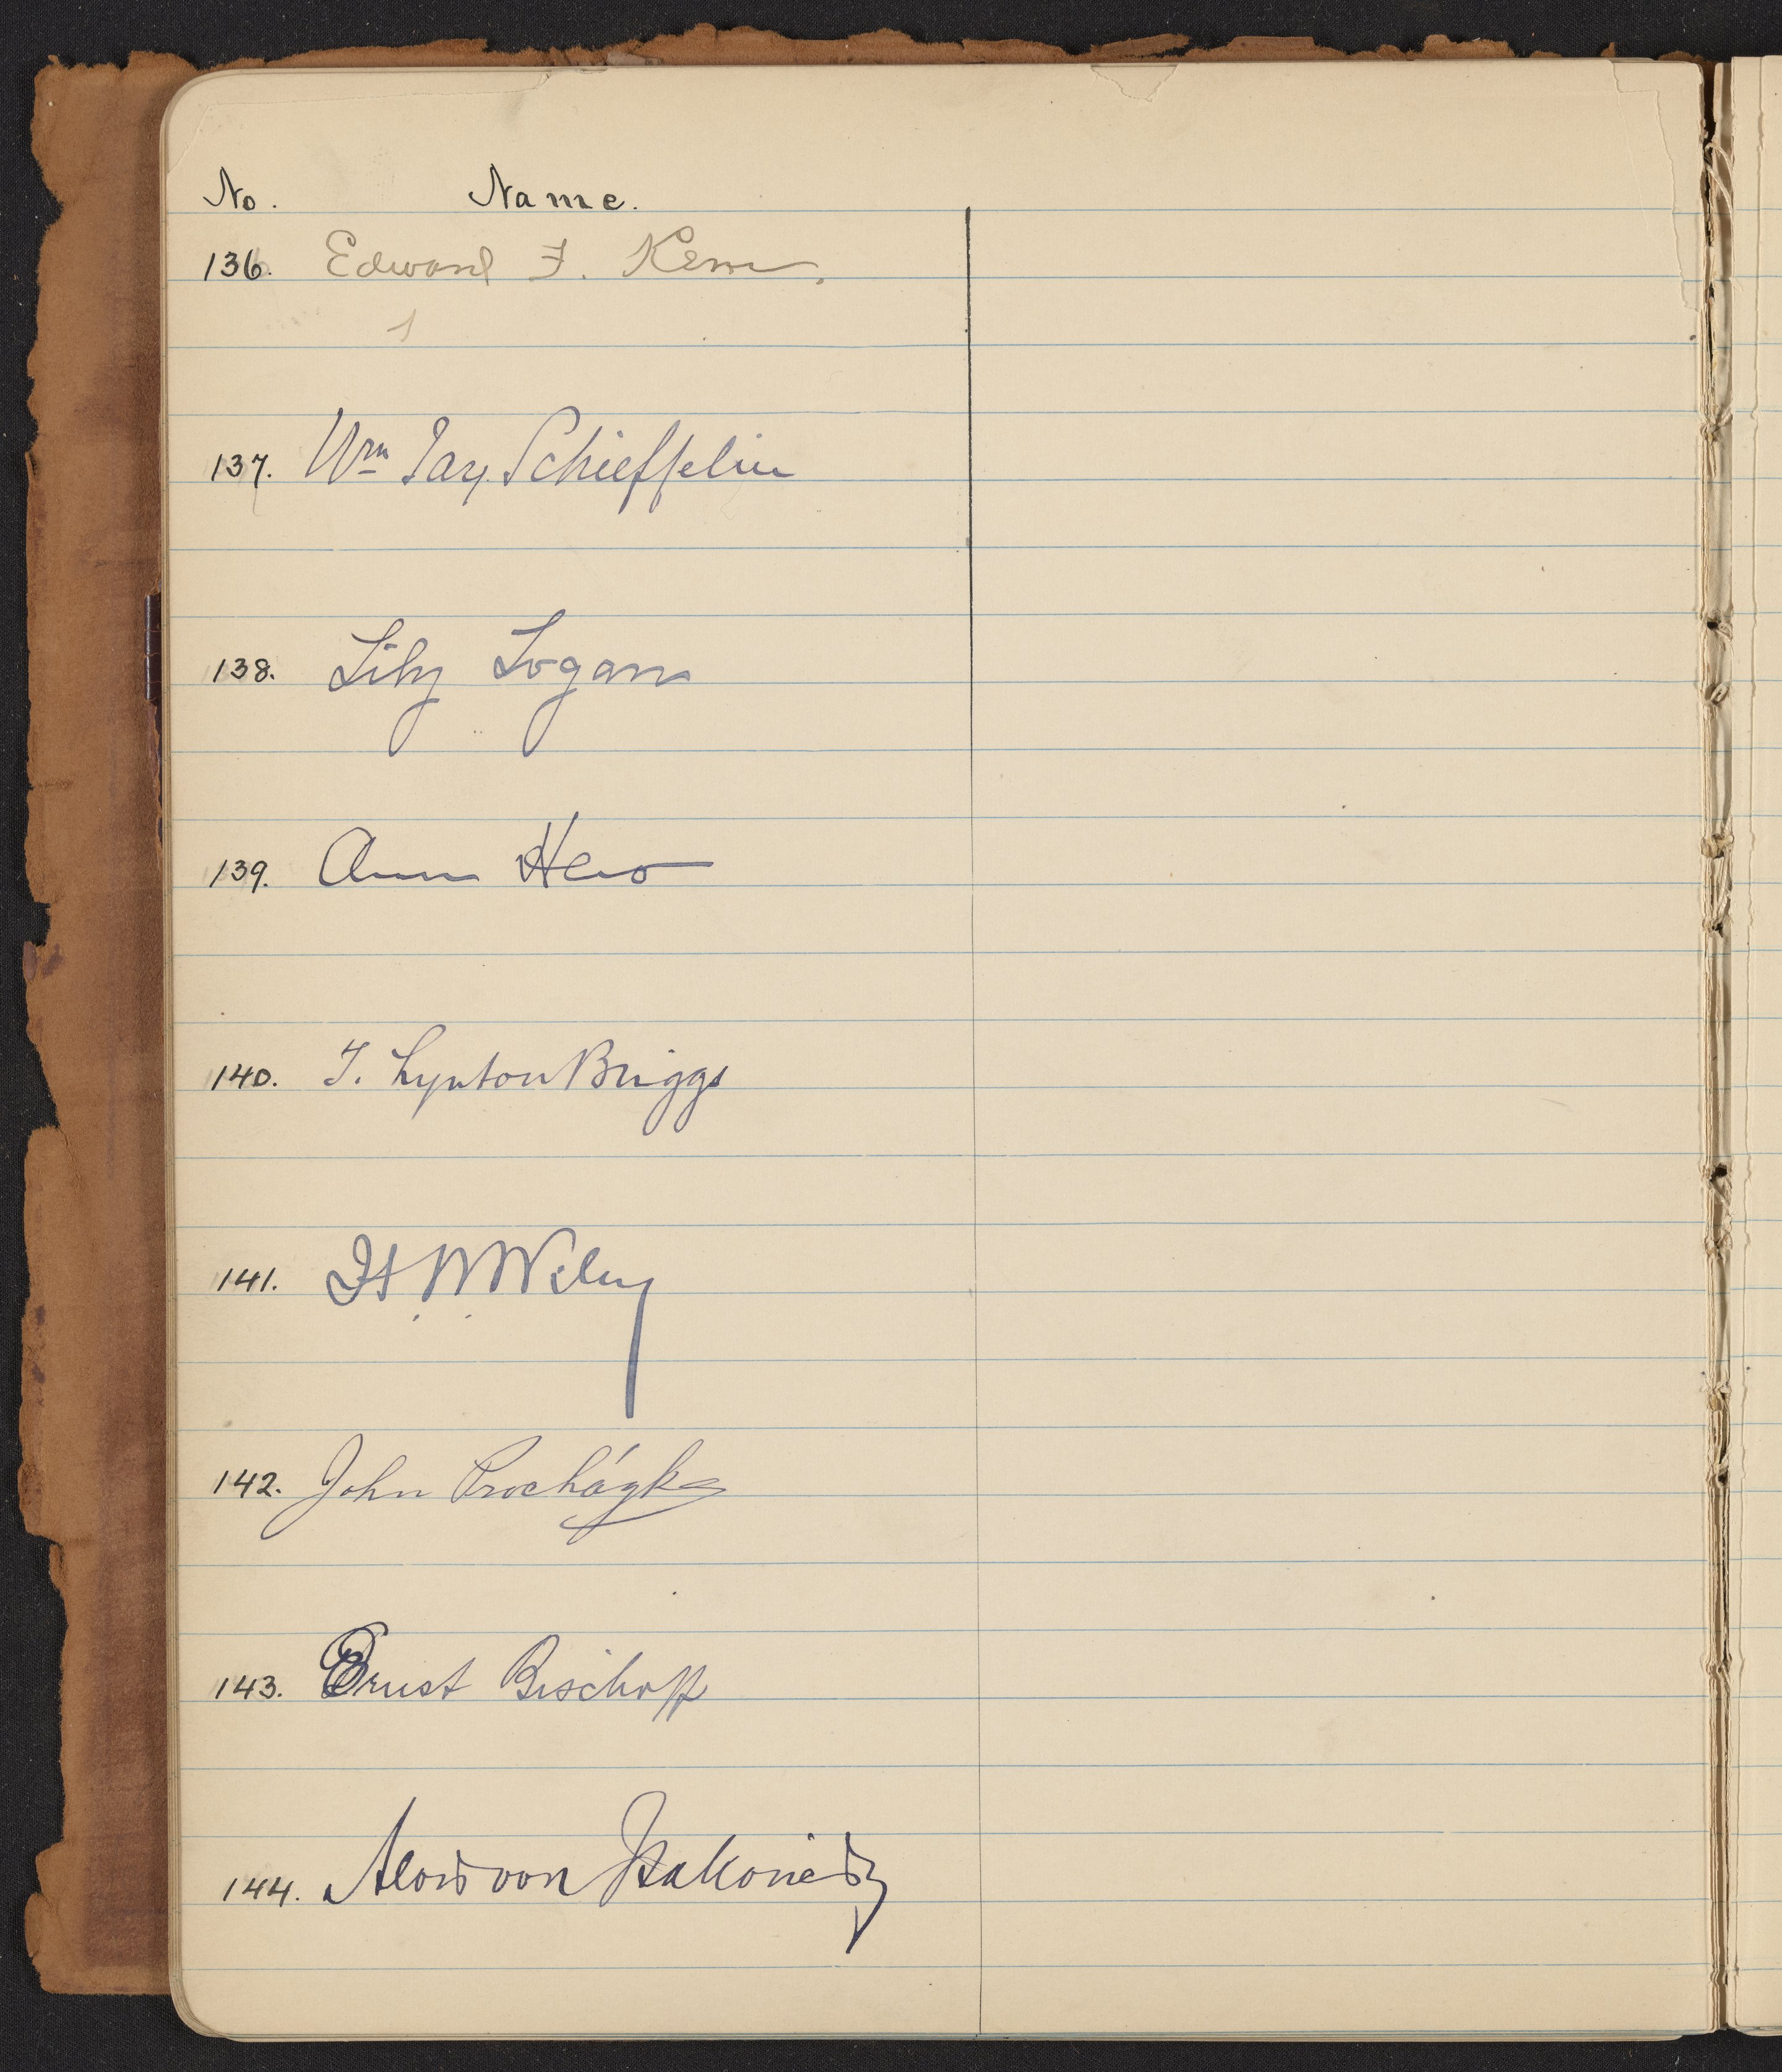 No. Name.
136. Edward F. Kern.
137. Wm Jay Schieffelin
138. Lily Logan
139. Ann Hero
140. T. Lynton Briggs
141. H. W. Wiley
142. John Procházka
143. Ernst Bischoff
144. Alois von